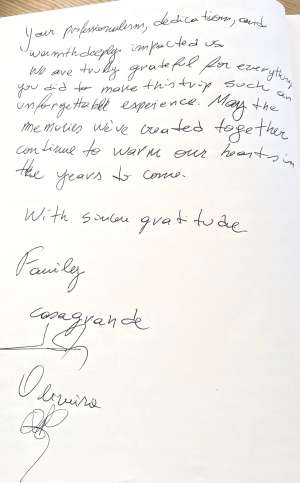 Your professionalism, dedications, and
warmth deeply impacted us
We are truly grateful for everything
you did to make this trip such an
unforgettable experience. May the
memories we've created together
continue to warm our hearts in
the years to come.
With sincere gratitude
Family
casagrande
Oliveira